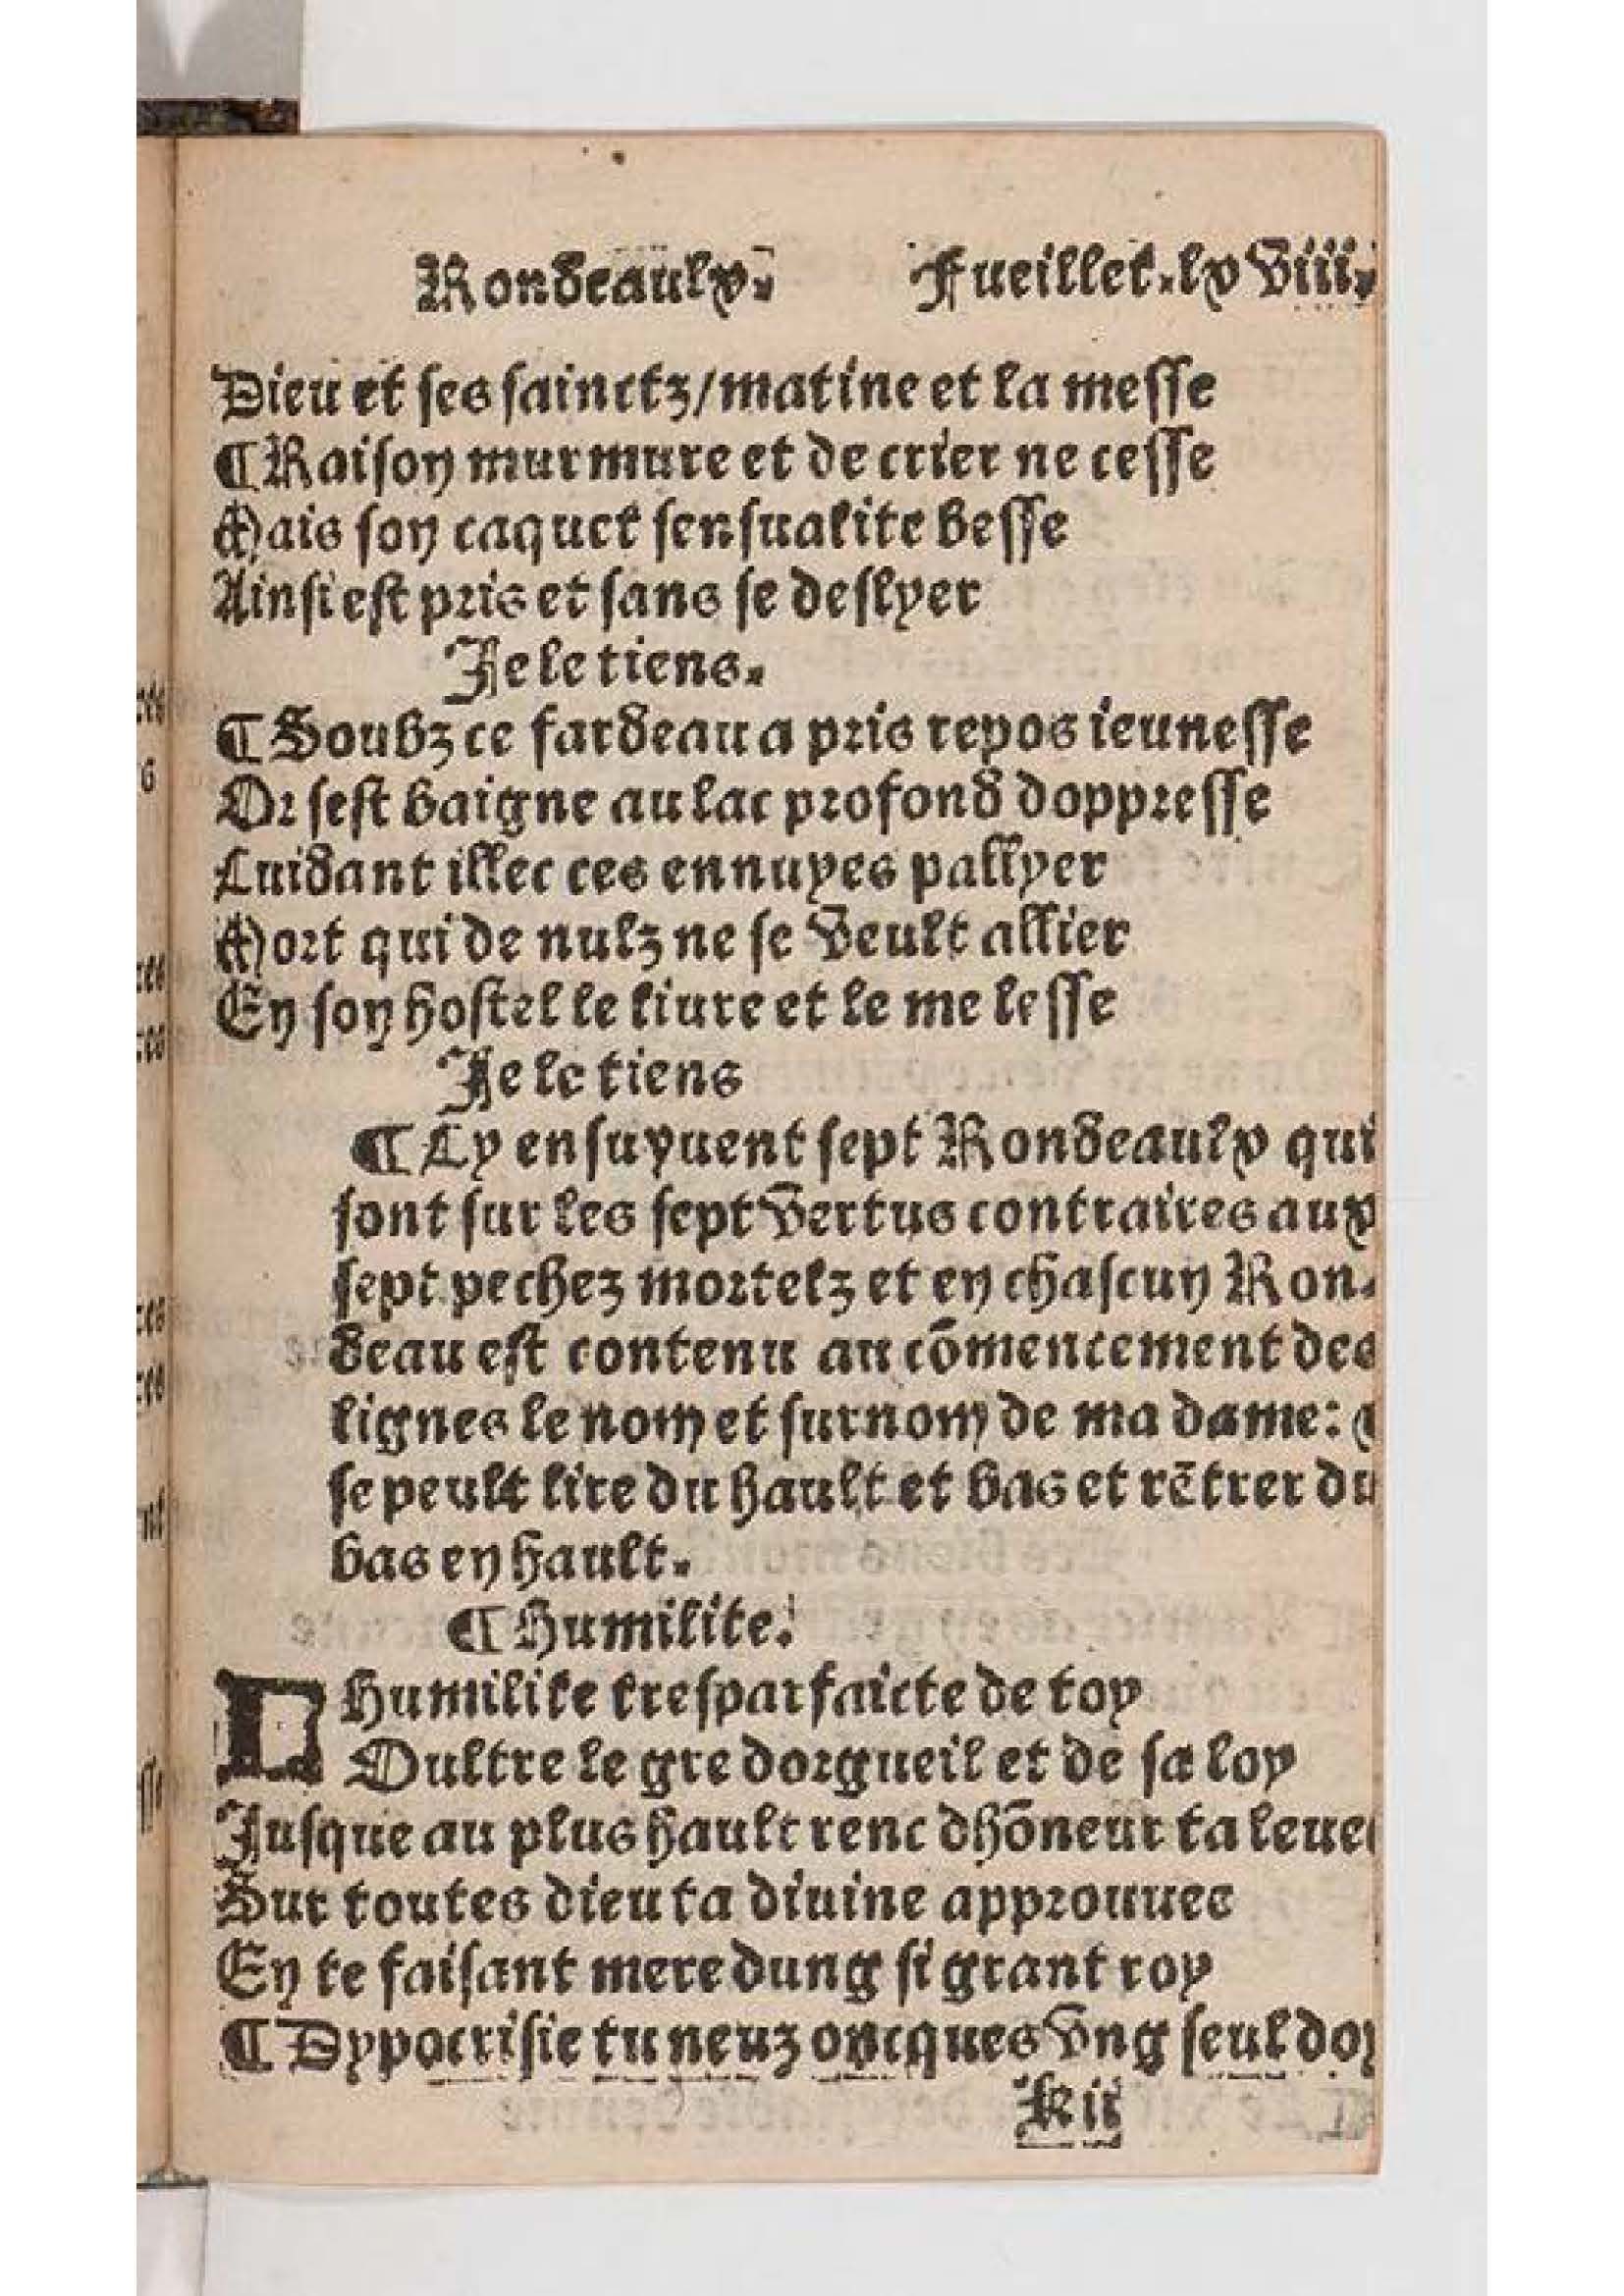 Rondeaulx. Fueillet.lxviii.
Dieu et ses sainctz/matine et la messe
¶Raison murmure et de crier ne cesse
Mais son caquet sensualite besse
Ainsi est pris et sans se deslyer
Je le tiens.
¶Soubz ce fardeau a pris repos ieunesse
Or sest baigne au lac profond doppresse
Cuidant illec ces ennuyes pallyer
Mort qui de nulz ne se veult allier
En son hostel le liure et le me lesse
Je le tiens
¶Cy ensuyuent sept Rondeaulx qui
sont sur les sept vertus contraires aux
sept pechez mortelz et en chascun Ron-
deau est contenu au cõmencement des
lignes le nom et surnom de ma dame:
se peult lire du hault et bas et rẽtrer du
bas en hault.
¶Humilite.
L Humilite tresparfaicte de toy
Oultre le gre dorgueil et de sa loy
Jusque au plus hault renc dhõneur ta leue
Sur toutes dieu ta diuine approuuee
En te faisant mere dung si grant roy
¶Dypocrisie tu neuz oncques vng seul doy
Kii